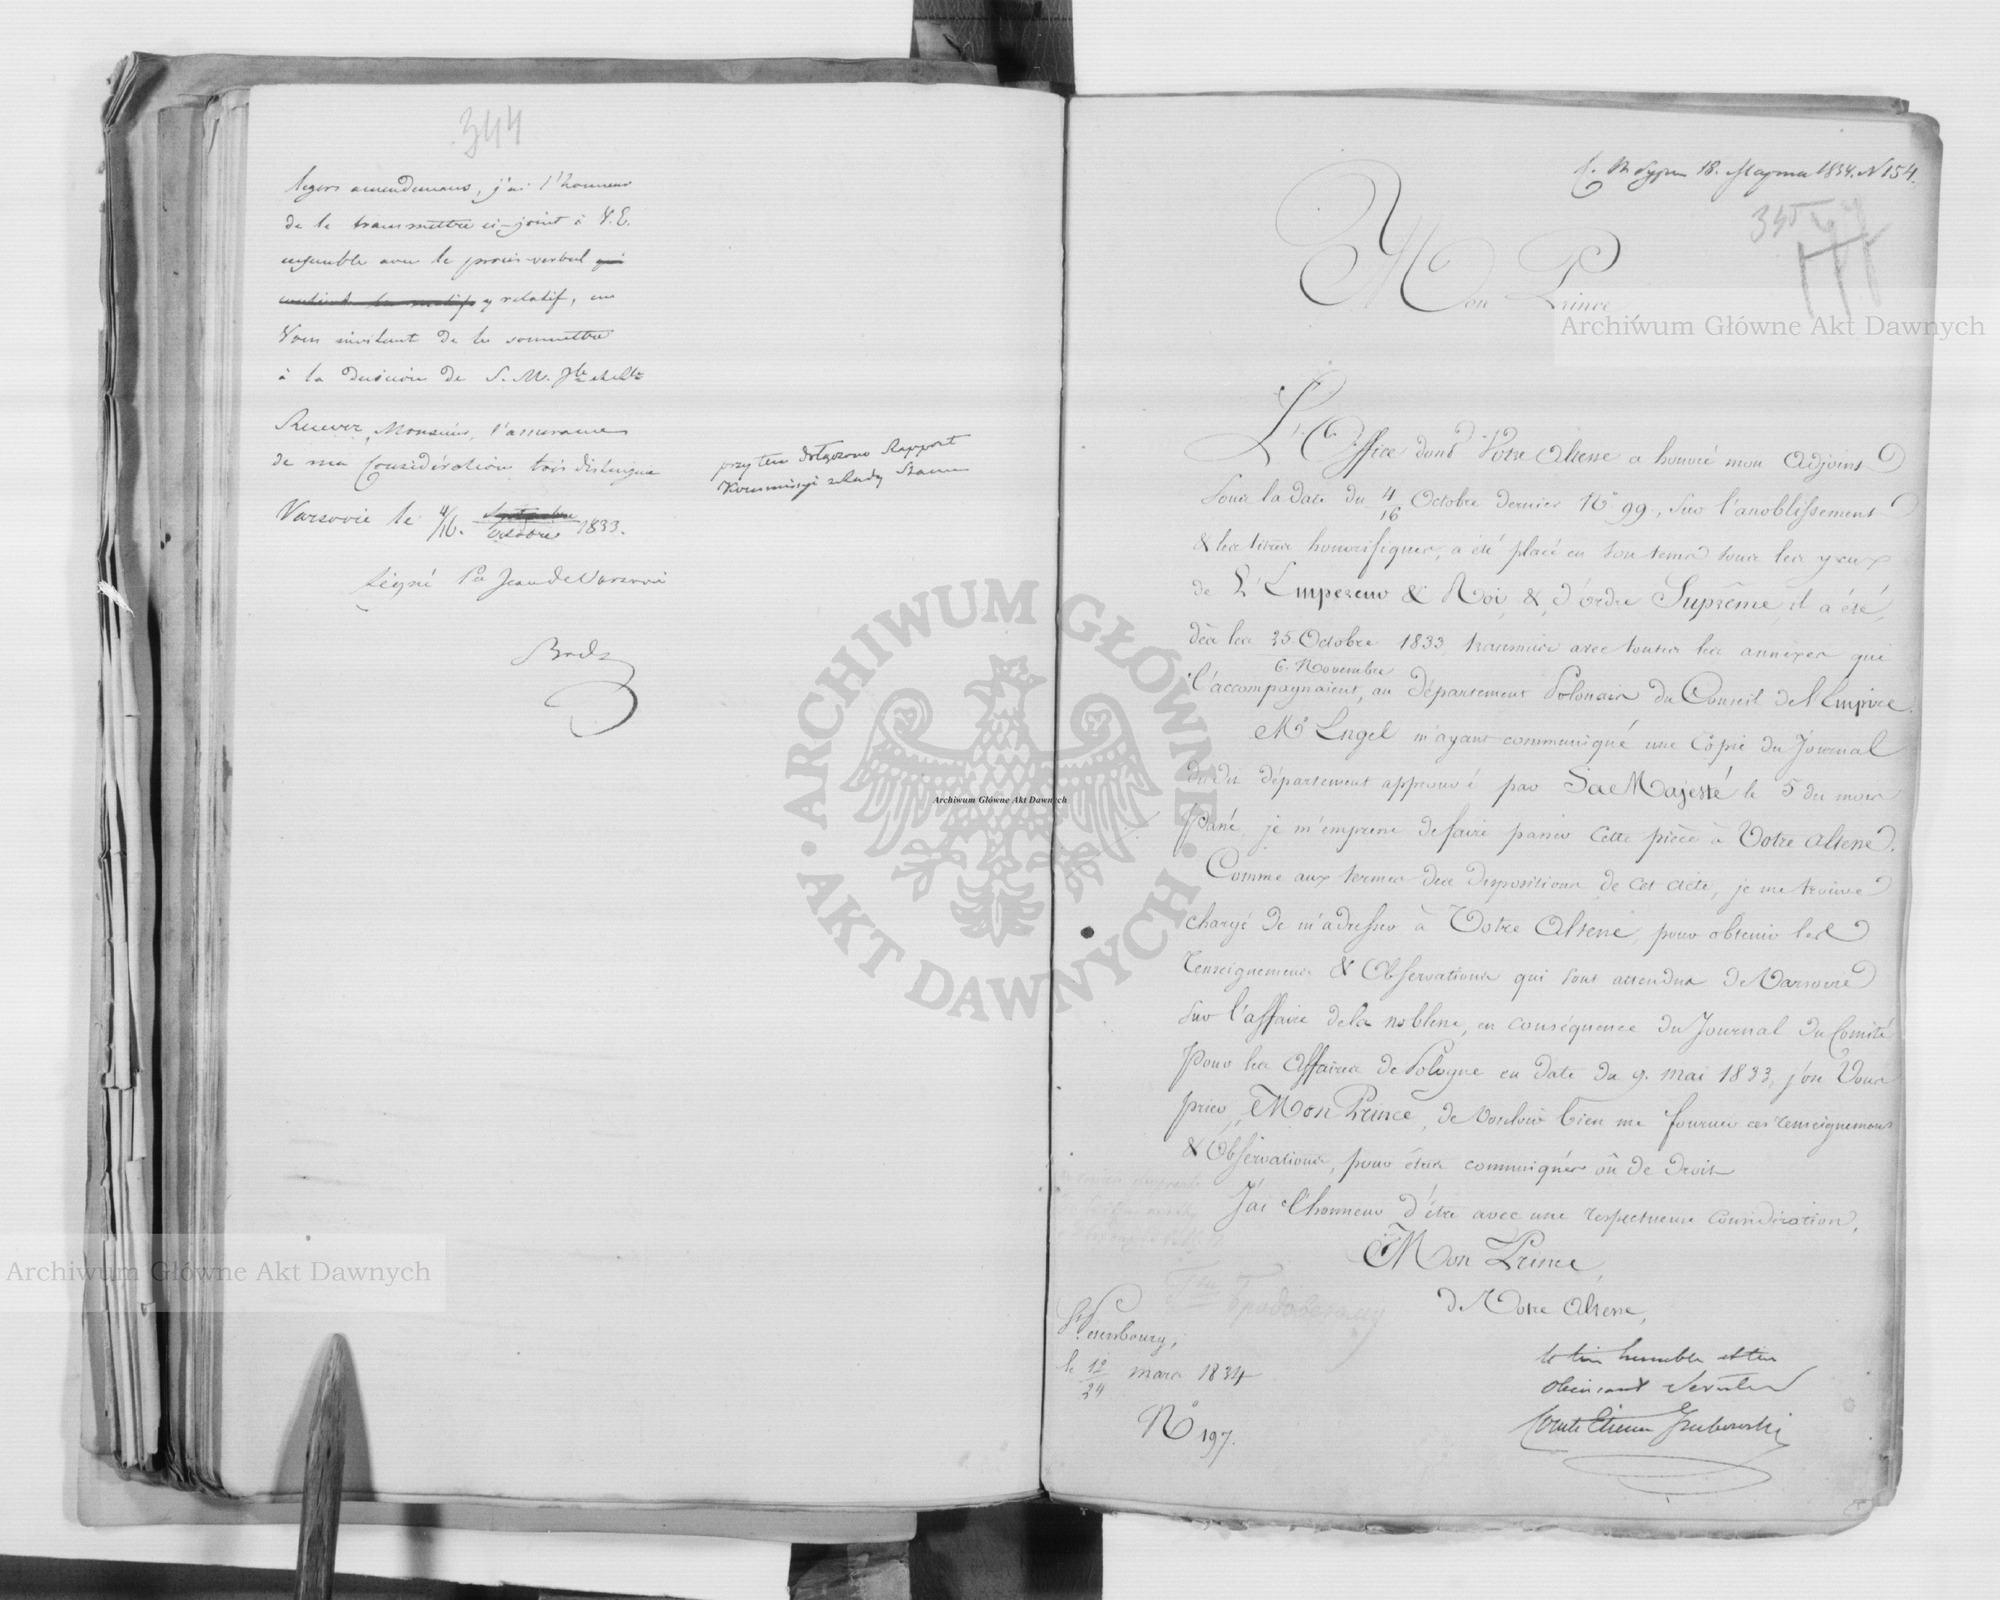 344
legers amendemans, j'ai l'honneur
de le transmettre ci-joint à V. E.
ensemble avec le procès-verbal qui
contient les motifs y relatif, en
Vous invitant de les soumettre
à la décision de S. M. Jle et Rlle
Recevez, Monsieur, l'assurance
de ma Considération très distinguée
Varsovie le 4/16. Septembre Octobre 1833.
signé Pce Jean de Varsovie
przytem dołączono Rapport
Kommissyi Rady Stanu
18. Марта 1834. N 154.
345
Mon Prince
L'Office dont Votre Altesse a honoré mon Adjoint
sous la date du 4/16 Octobre dernier N° 99, sur l'anoblissement
& les titres honorifiques, a été placé en son tems sous les yeux
de L'Empereur & Roi, & d'ordre Suprême, il a été,
dès les 25. Octobre 1833, transmis avec toutes les annexes qui
6. Novembre
l'accompagnaient, au département Polonais du Conseil de l'Empire.
Mr Engel m'ayant communiqué une Copie du Journal
du dit département approuvé par Sa Majesté le 5 du mois
passé, je m'empresse de faire passer cette pièce à Votre Altesse.
Comme aux termes des dispositions de cet acte, je me trouve
chargé de m'adresser à Votre Altesse, pour obtenir les
renseignemens & Observations qui sont attendus de Varsovie
sur l'affaire de la noblesse, en conséquence du Journal du Comité
pour les Affaires de Pologne en date du 9. mai 1833, j'ose Vous
prier, Mon Prince, de vouloir bien me fournir ces renseignemens
& Observations, pour être communiqués où de droit
J'ai l'honneur d'être avec une respectueuse considération,
Mon Prince,
de Votre Altesse,
St Petersbourg,
le 12/24 mars 1834
N° 197.
le très humble et très
obéissant Serviteur
Comte Etienne Grabowski
Archiwum Główne Akt Dawnych
Archiwum Główne Akt Dawnych
Archiwum Główne Akt Dawnych
ARCHIWUM GŁÓWNE · AKT DAWNYCH ·